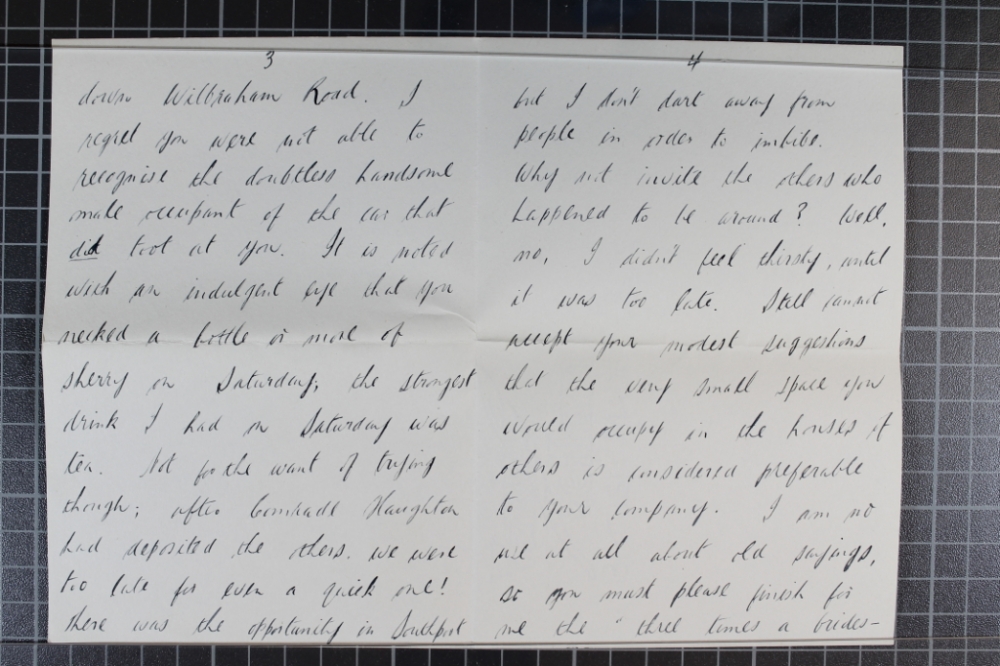 3
down Wilbraham Road. I
regret you were not able to
recognise the doubtless handsome
male occupant of the car that
did toot at you. It is noted
with an indulgent eye that you
necked a bottle or more of
sherry on Saturday; the strongest
drink I had on Saturday was
tea. Not for the want of trying
though; after Comrade Haughton
had deposited the others. we were
too late for even a quick one!
there was the opportunity in Southport
4
but I don't dart away from
people in order to imbibe.
Why not invite the others who
happened to be around? Well,
no, I didn't feel thirsty, until
it was too late. Still cannot
accept your modest suggestions
that the very small space you
would occupy in the houses of
others is considered preferable
to your company. I am no
use at all about old sayings,
so you must please finish for
me the "three times a brides-